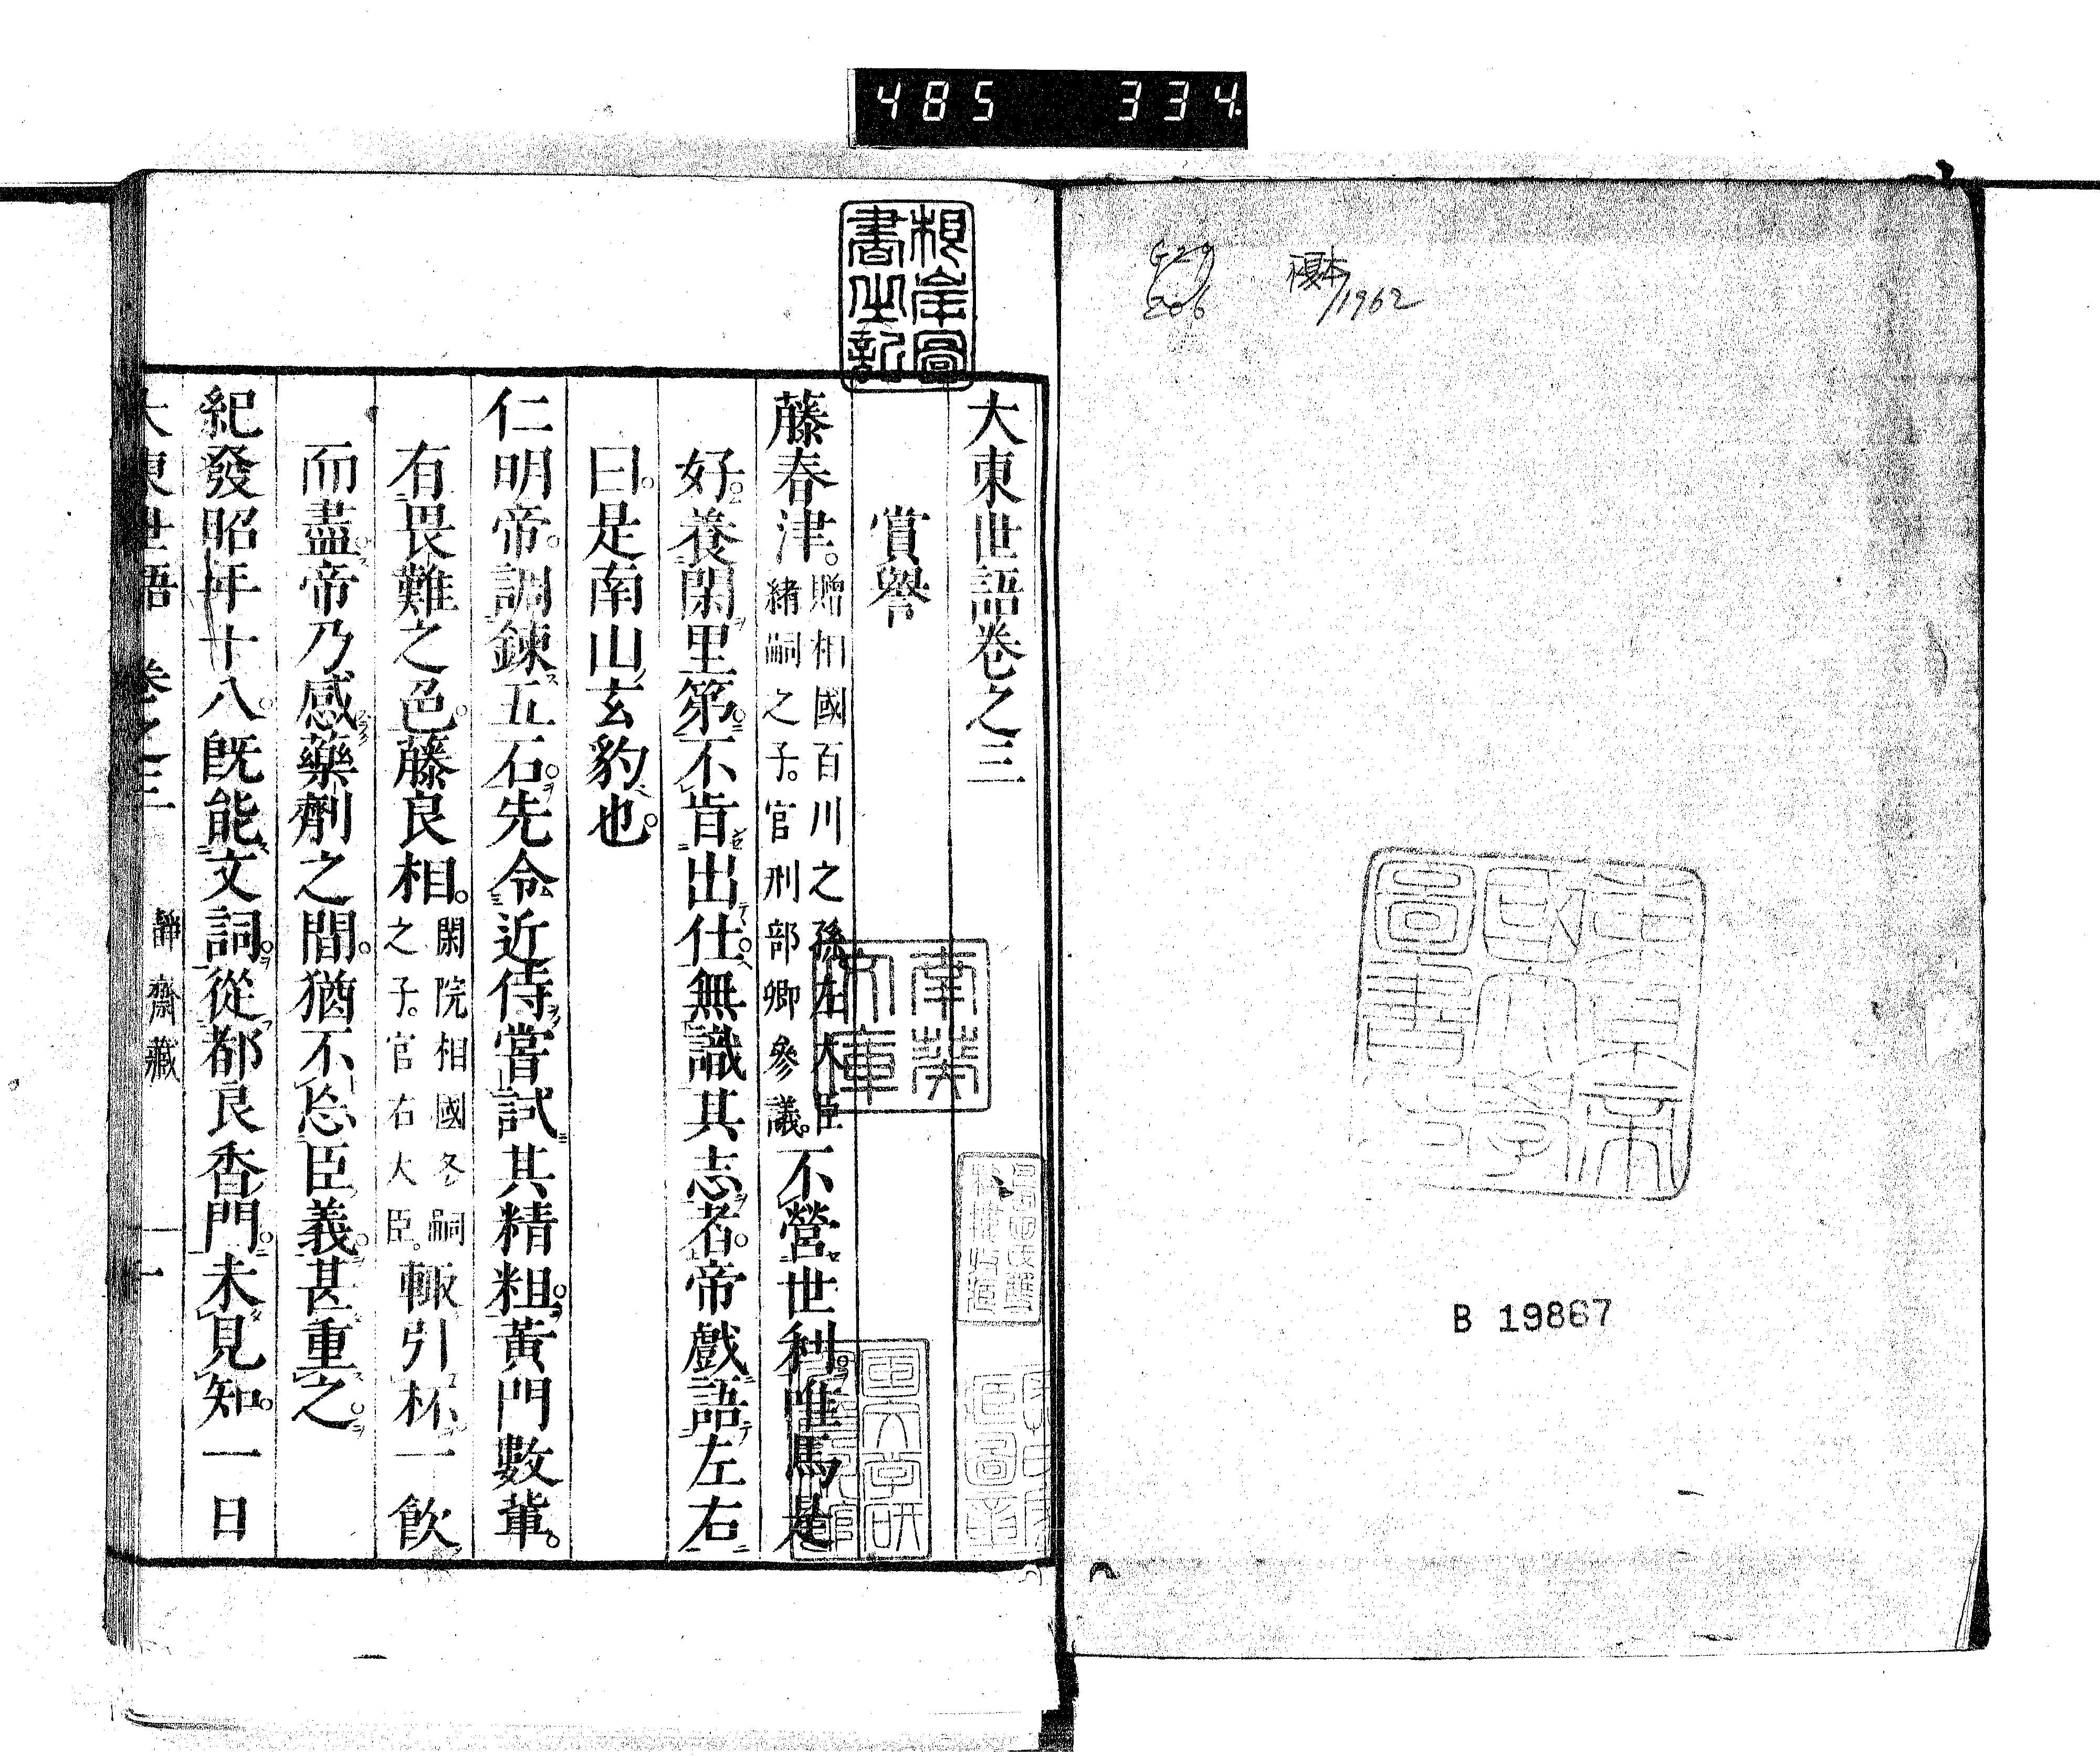 485 334
G29
206
榎本
1962
B 19867
東京帝
國大學
圖書印
根岸圖
書之記
南葵
文庫
大東世語卷之三
賞譽
藤春津。贈相國百川之孫左大臣緒嗣之子。官刑部卿參議。不營世利唯馬是
好養閑里第不肯出仕無識其志者帝戲語左右
曰是南山玄豹也
仁明帝調鍊五石先令近侍嘗試其精粗黃門數輩
有畏難之色藤良相。閑院相國冬嗣之子。官右大臣。輙引杯一飲
而盡帝乃感藥劑之間猶不忘臣義甚重之
紀發昭年十八既能文詞從都良香門未見知一日
大東世語 卷之三 一 靜齋藏